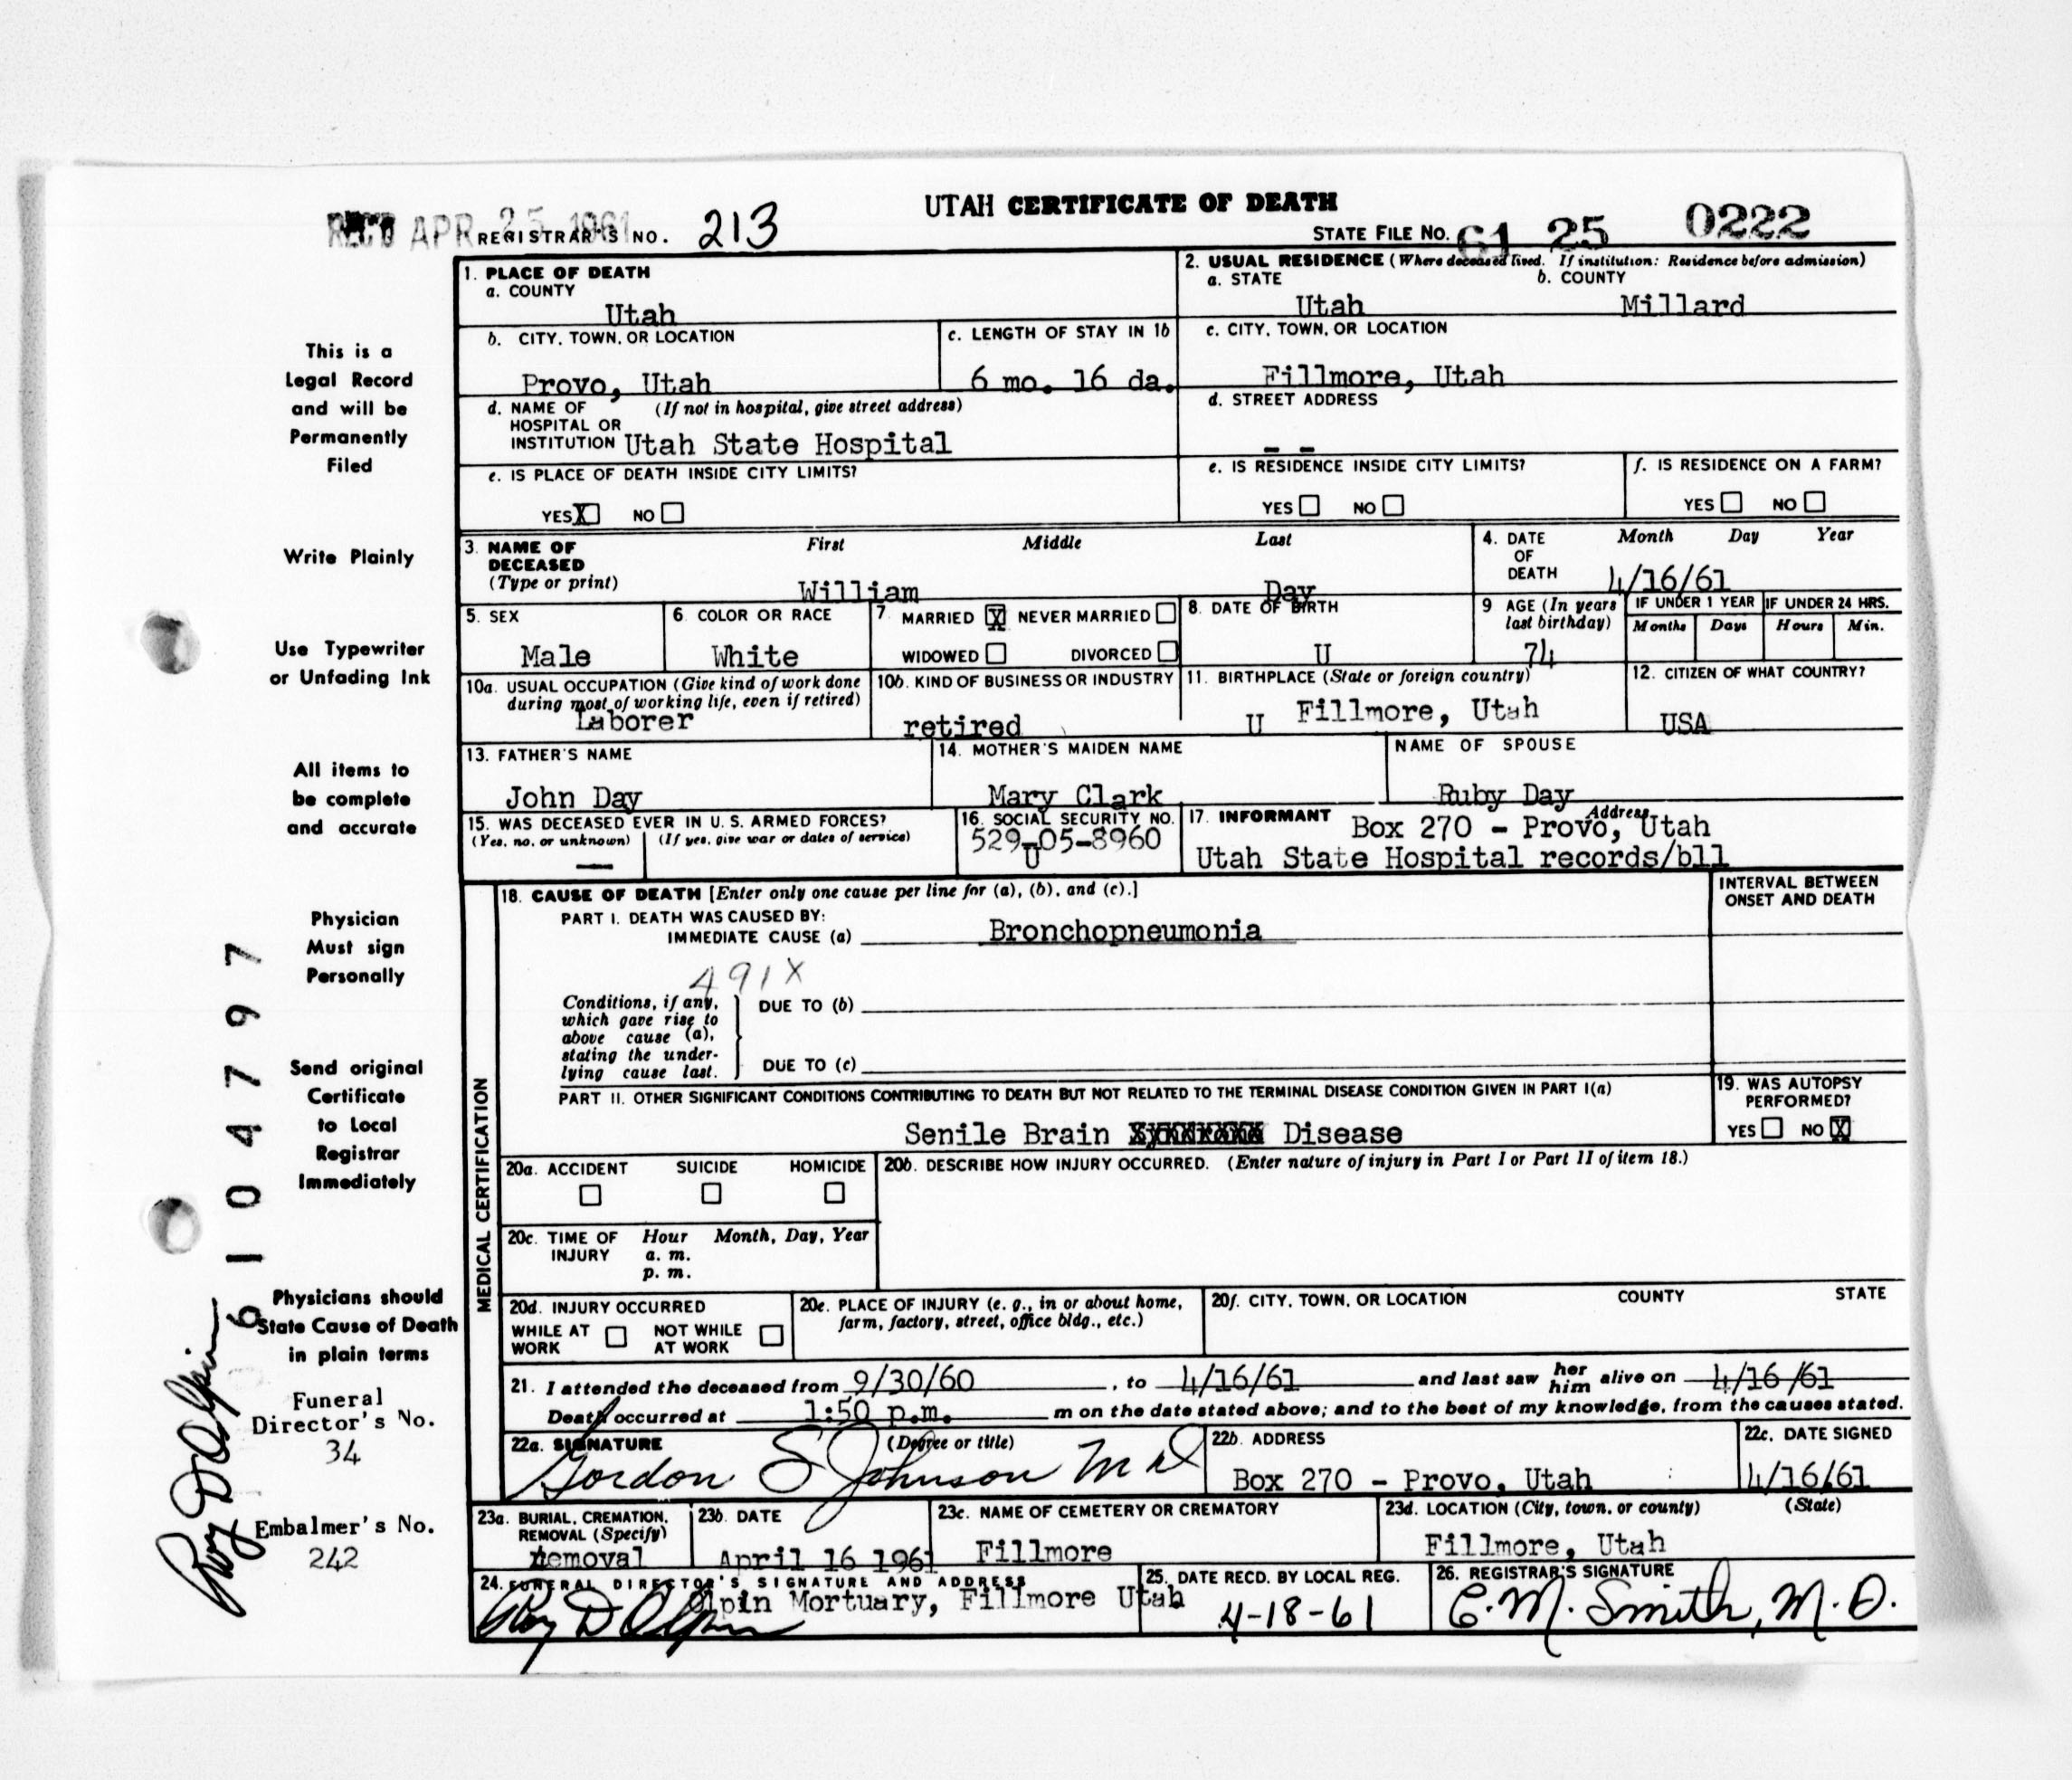 UTAH CERTIFICATE OF DEATH
REC'D APR 25 1961 REGISTRAR'S NO. 213
STATE FILE NO. 61 25 0222
1. PLACE OF DEATH
a. COUNTY
Utah
2. USUAL RESIDENCE (Where deceased lived. If institution: Residence before admission)
a. STATE b. COUNTY
Utah Millard
b. CITY, TOWN, OR LOCATION
Provo, Utah
c. LENGTH OF STAY IN 1b
6 mo. 16 da.
c. CITY, TOWN, OR LOCATION
Fillmore, Utah
d. NAME OF HOSPITAL OR INSTITUTION (If not in hospital, give street address)
Utah State Hospital
d. STREET ADDRESS
- -
e. IS PLACE OF DEATH INSIDE CITY LIMITS?
YES X NO
e. IS RESIDENCE INSIDE CITY LIMITS?
YES NO
f. IS RESIDENCE ON A FARM?
YES NO
3. NAME OF DECEASED (Type or print)
First Middle Last
William Day
4. DATE OF DEATH Month Day Year
4/16/61
5. SEX
Male
6. COLOR OR RACE
White
7. MARRIED X NEVER MARRIED
WIDOWED DIVORCED
8. DATE OF BIRTH
U
9 AGE (In years last birthday)
74
IF UNDER 1 YEAR IF UNDER 24 HRS.
Months Days Hours Min.
10a. USUAL OCCUPATION (Give kind of work done during most of working life, even if retired)
Laborer
10b. KIND OF BUSINESS OR INDUSTRY
retired
11. BIRTHPLACE (State or foreign country)
U Fillmore, Utah
12. CITIZEN OF WHAT COUNTRY?
USA
13. FATHER'S NAME
John Day
14. MOTHER'S MAIDEN NAME
Mary Clark
NAME OF SPOUSE
Ruby Day
15. WAS DECEASED EVER IN U. S. ARMED FORCES?
(Yes, no, or unknown) (If yes, give war or dates of service)
—
16. SOCIAL SECURITY NO.
529-05-8960
U
17. INFORMANT Address
Box 270 - Provo, Utah
Utah State Hospital records/bll
MEDICAL CERTIFICATION
18. CAUSE OF DEATH [Enter only one cause per line for (a), (b), and (c).]
INTERVAL BETWEEN ONSET AND DEATH
PART I. DEATH WAS CAUSED BY:
IMMEDIATE CAUSE (a) Bronchopneumonia
491X
Conditions, if any, which gave rise to above cause (a), stating the underlying cause last.
DUE TO (b)
DUE TO (c)
PART II. OTHER SIGNIFICANT CONDITIONS CONTRIBUTING TO DEATH BUT NOT RELATED TO THE TERMINAL DISEASE CONDITION GIVEN IN PART I(a)
Senile Brain Disease
19. WAS AUTOPSY PERFORMED?
YES NO X
20a. ACCIDENT SUICIDE HOMICIDE
20b. DESCRIBE HOW INJURY OCCURRED. (Enter nature of injury in Part I or Part II of item 18.)
20c. TIME OF INJURY Hour Month, Day, Year
a. m.
p. m.
20d. INJURY OCCURRED
WHILE AT WORK NOT WHILE AT WORK
20e. PLACE OF INJURY (e. g., in or about home, farm, factory, street, office bldg., etc.)
20f. CITY, TOWN, OR LOCATION COUNTY STATE
21. I attended the deceased from 9/30/60, to 4/16/61 and last saw her him alive on 4/16/61
Death occurred at 1:50 p.m. m on the date stated above; and to the best of my knowledge, from the causes stated.
22a. SIGNATURE (Degree or title)
Gordon S Johnson M D
22b. ADDRESS
Box 270 - Provo, Utah
22c. DATE SIGNED
4/16/61
23a. BURIAL, CREMATION, REMOVAL (Specify)
removal
23b. DATE
April 16 1961
23c. NAME OF CEMETERY OR CREMATORY
Fillmore
23d. LOCATION (City, town, or county) (State)
Fillmore, Utah
24. FUNERAL DIRECTOR'S SIGNATURE AND ADDRESS
Olpin Mortuary, Fillmore Utah
Roy D Olpin
25. DATE RECD. BY LOCAL REG.
4-18-61
26. REGISTRAR'S SIGNATURE
E.M. Smith, M.D.
This is a
Legal Record
and will be
Permanently
Filed
Write Plainly
Use Typewriter
or Unfading Ink
All items to
be complete
and accurate
Physician
Must sign
Personally
Send original
Certificate
to Local
Registrar
Immediately
Physicians should
State Cause of Death
in plain terms
Funeral
Director's No.
34
Embalmer's No.
242
6104797
Roy D Olpin